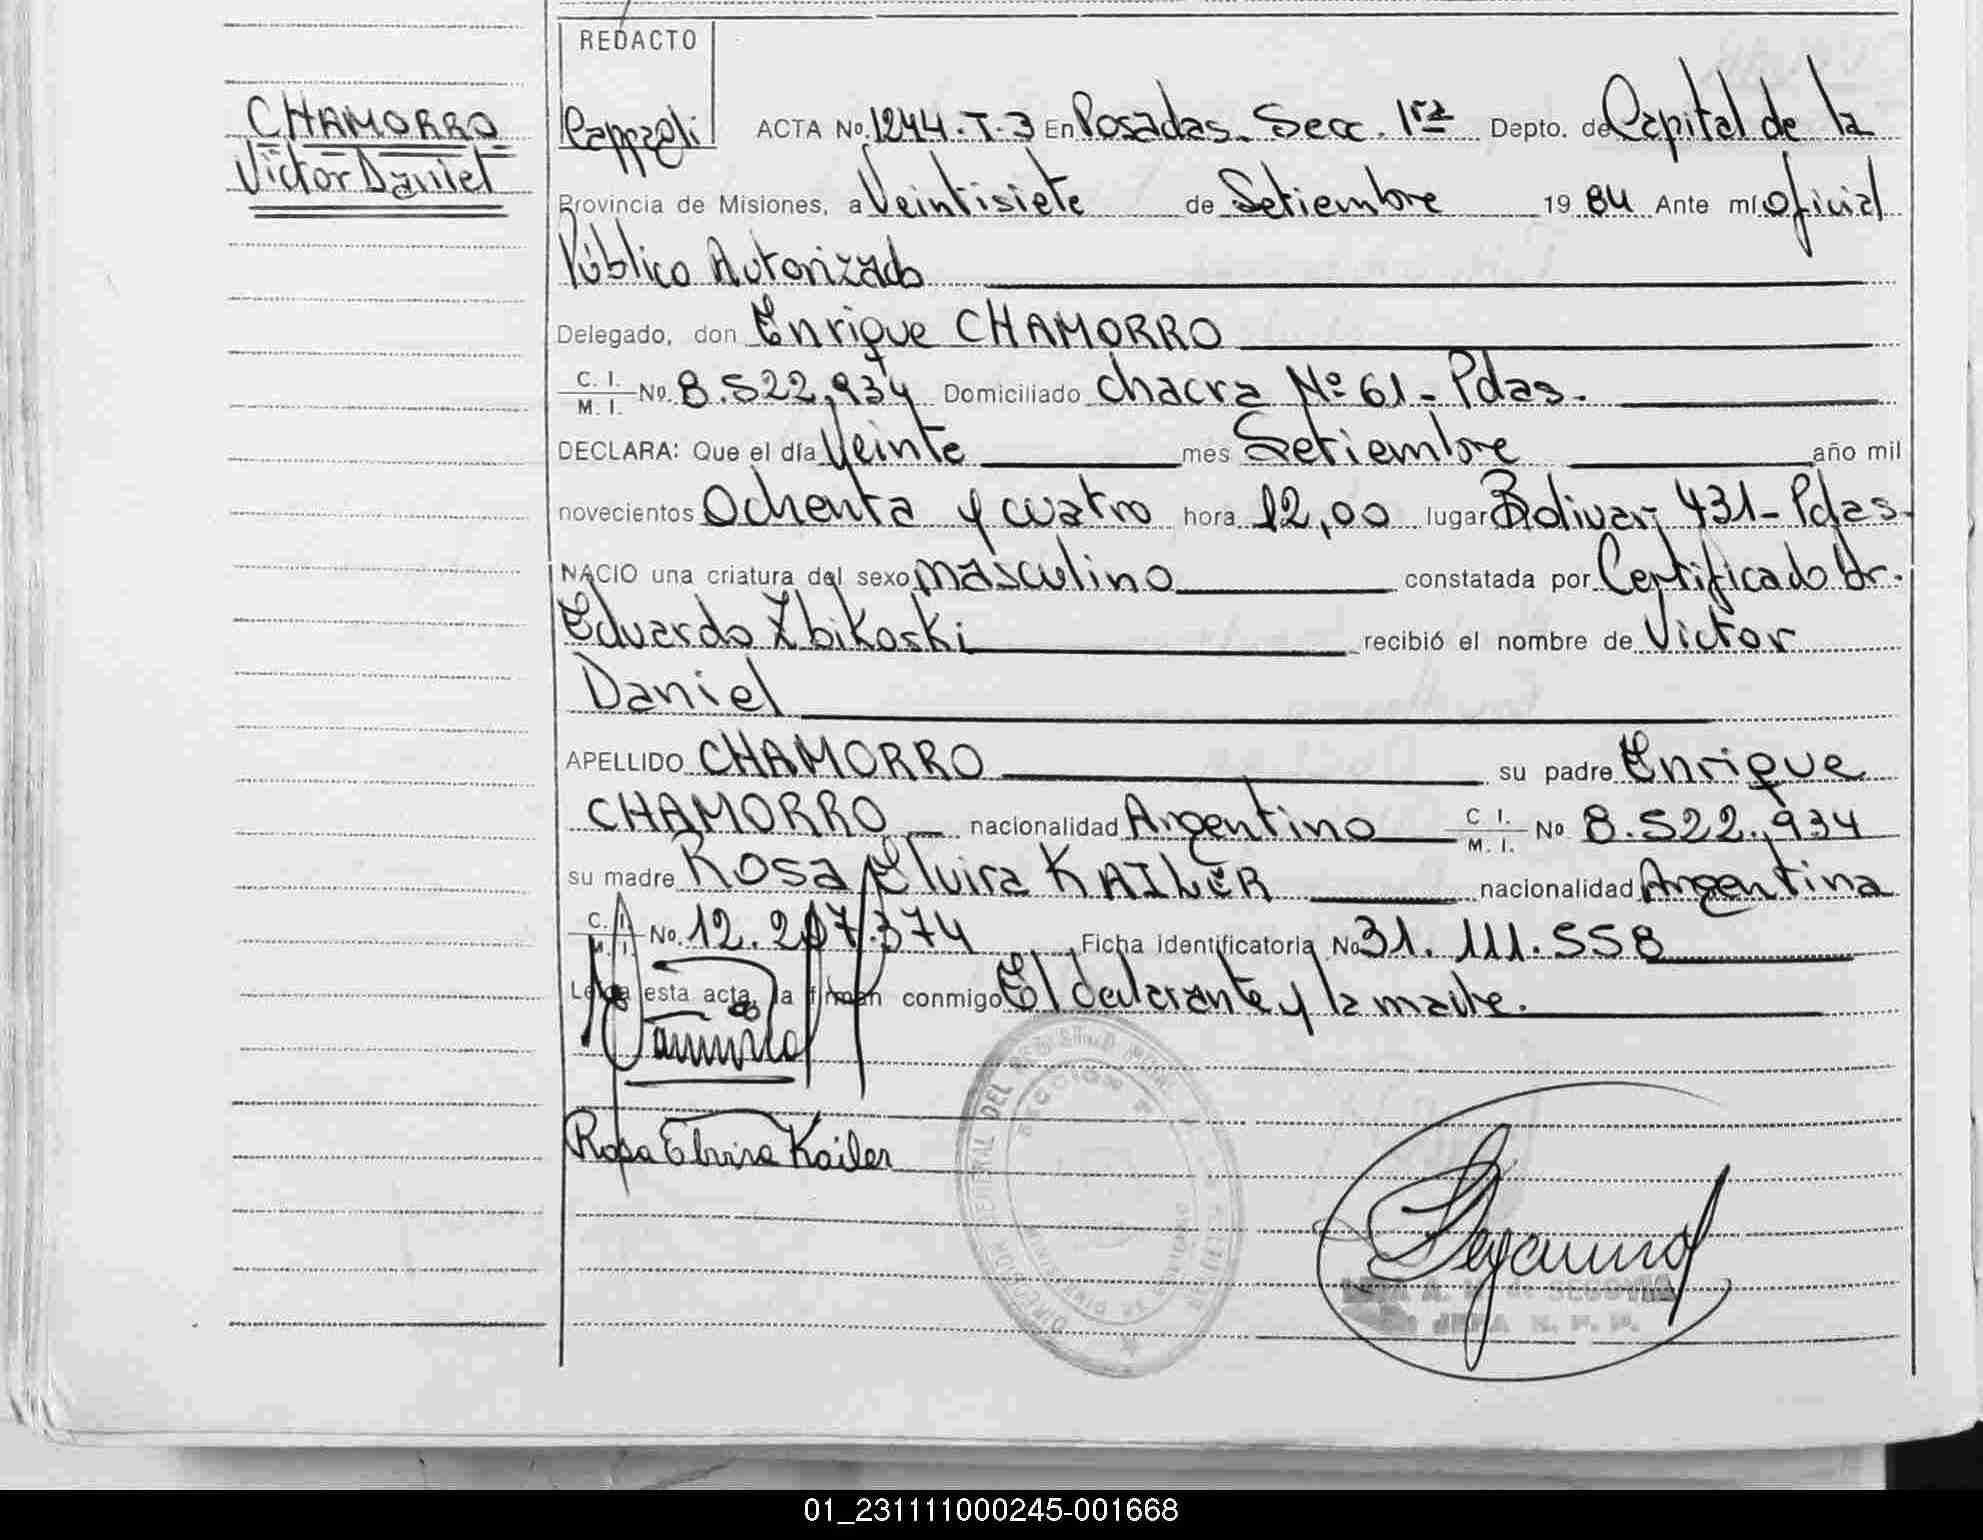 REDACTO
CHAMORRO
Victor Daniel
Cappagli ACTA No. 1244.T.3 En Posadas. Secc. 1ra Depto. de Capital de la
Provincia de Misiones, a Veintisiete de Setiembre 19 84 Ante mí Oficial
Público Autorizado
Delegado, don Enrique CHAMORRO
C. I. M. I. No. 8.522.934 Domiciliado chacra Nº 61 - Pdas.
DECLARA: Que el día Veinte mes Setiembre año mil
novecientos Ochenta y cuatro hora 12,00 lugar Bolivar 431 - Pdas.
NACIO una criatura del sexo masculino constatada por Certificado Dr.
Eduardo Zbikoski recibió el nombre de Victor
Daniel
APELLIDO CHAMORRO su padre Enrique
CHAMORRO nacionalidad Argentino C. I. M. I. No 8.522.934
su madre Rosa Elvira KAILER nacionalidad Argentina
C. I. M. I. No. 12.207.374 Ficha identificatoria No 31.111.558
Leída esta acta, la firman conmigo El declarante y la madre.
Rosa Elvira Kailer
DIRECCION GENERAL DEL REGISTRO
SEGOVIA
JEFA
01_231111000245-001668